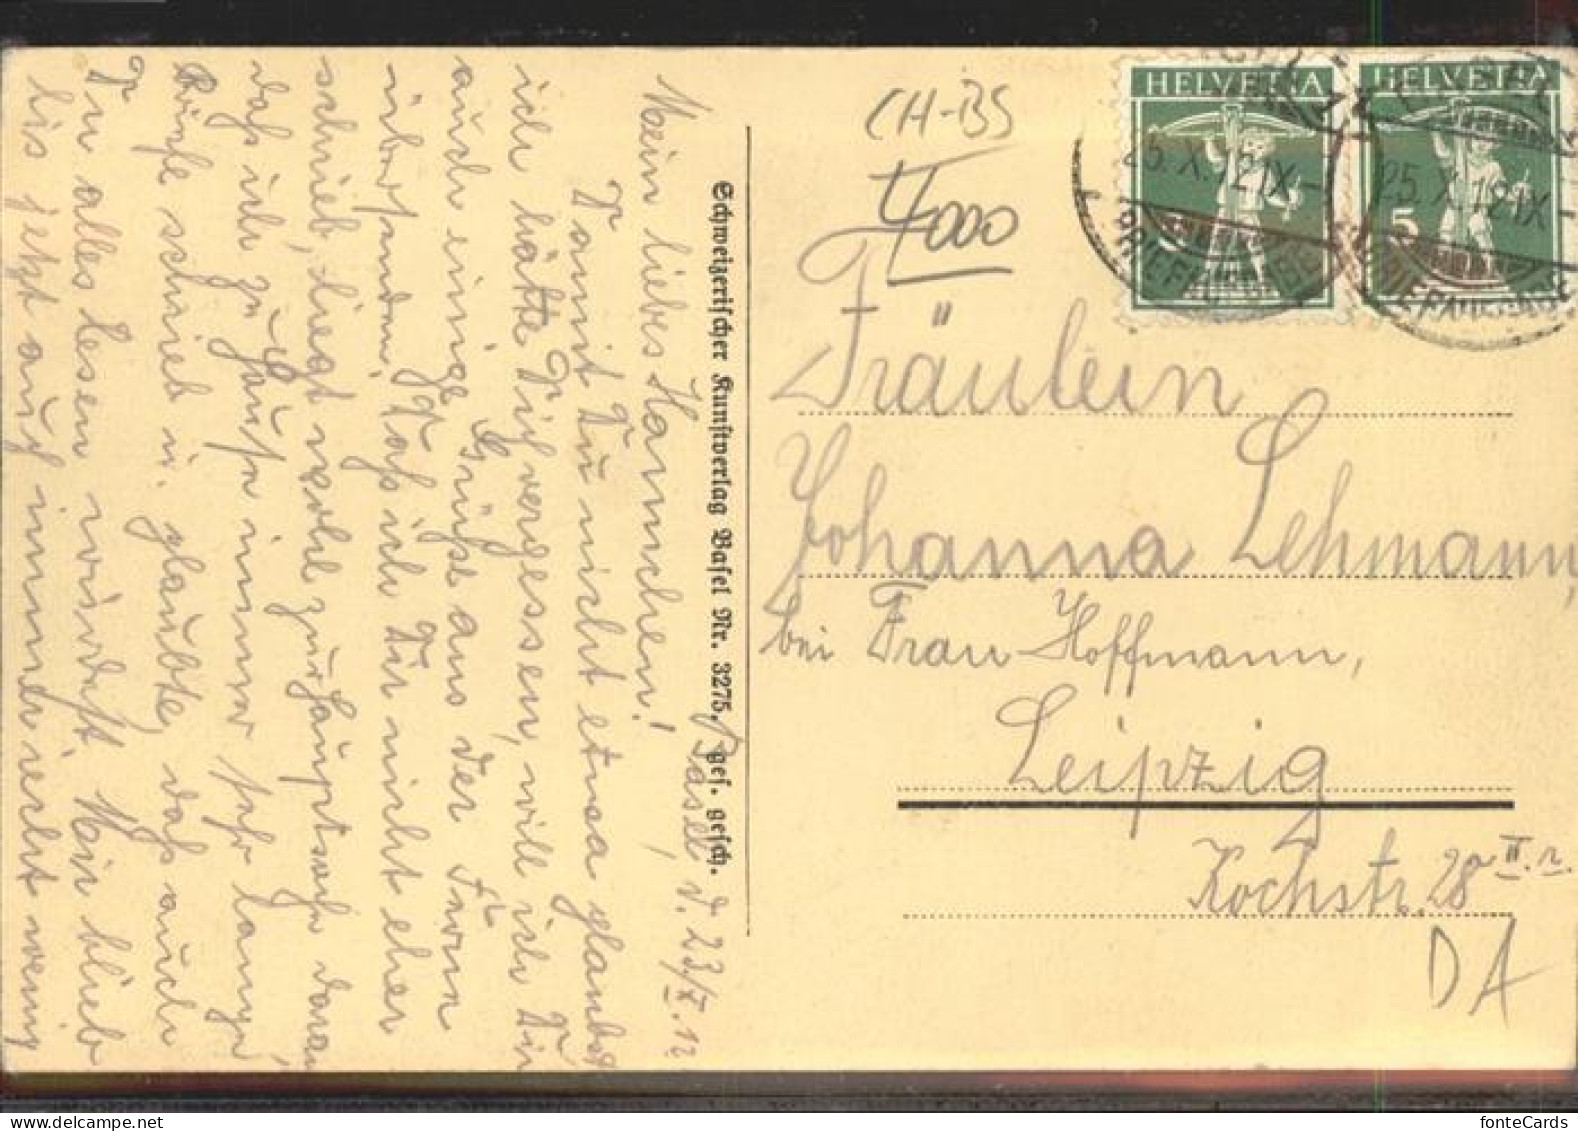 Basel, d. 23/X.12
Mein liebes Hannchen!
Damit Du nicht etwa glaubst
ich hätte Dich vergessen, will ich Dir
auch einige Grüße aus der Ferne
übersenden. Daß ich Dir nicht eher
schrieb, liegt wohl zur Hauptsache daran,
daß ich zu Hause immer sehr lange
Briefe schrieb u. glaubte, daß auch
Du alles lesen würdest. Mir blieb
bis jetzt auch immer recht wenig
Schweizerischer Kunstverlag Basel Nr. 3275. ges. gesch.
CH-BS
4000
HELVETIA HELVETIA
5
25.X.12 IX- 25.X.12 IX-
BRIEFAUFGABE BRIEFAUFGABE
Fräulein
Johanna Lehmann,
bei Frau Hoffmann,
Leipzig
Kochstr. 28 II. r.
DA
www.delcampe.net
fonteCards